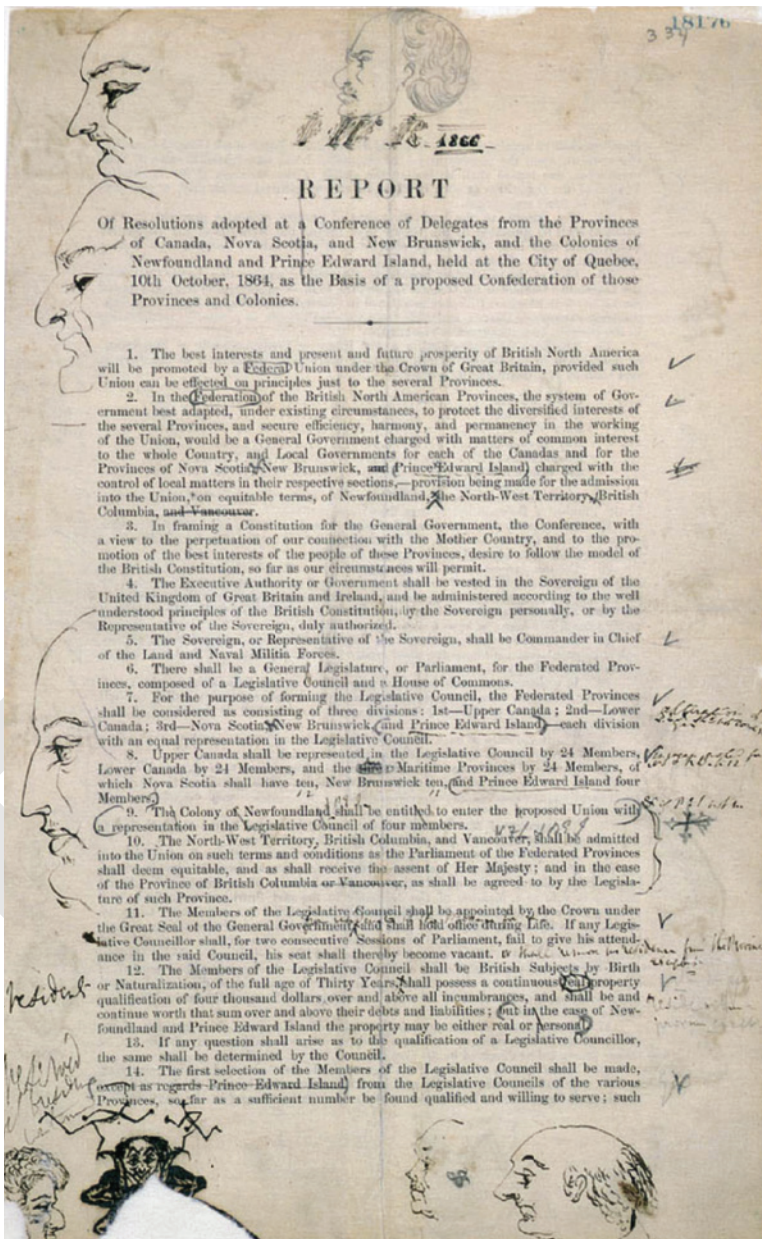 18176
334
1866
REPORT
Of Resolutions adopted at a Conference of Delegates from the Provinces
of Canada, Nova Scotia, and New Brunswick, and the Colonies of
Newfoundland and Prince Edward Island, held at the City of Quebec,
10th October, 1864, as the Basis of a proposed Confederation of those
Provinces and Colonies.
1. The best interests and present and future prosperity of British North America
will be promoted by a Federal Union under the Crown of Great Britain, provided such
Union can be effected on principles just to the several Provinces.
2. In the Federation of the British North American Provinces, the system of Gov-
ernment best adapted, under existing circumstances, to protect the diversified interests of
the several Provinces, and secure efficiency, harmony, and permanency in the working
of the Union, would be a General Government charged with matters of common interest
to the whole Country, and Local Governments for each of the Canadas and for the
Provinces of Nova Scotia, New Brunswick, and Prince Edward Island, charged with the
control of local matters in their respective sections,—provision being made for the admission
into the Union, on equitable terms, of Newfoundland, the North-West Territory, British
Columbia, and Vancouver.
3. In framing a Constitution for the General Government, the Conference, with
a view to the perpetuation of our connection with the Mother Country, and to the pro-
motion of the best interests of the people of these Provinces, desire to follow the model of
the British Constitution, so far as our circumstances will permit.
4. The Executive Authority or Government shall be vested in the Sovereign of the
United Kingdom of Great Britain and Ireland, and be administered according to the well
understood principles of the British Constitution, by the Sovereign personally, or by the
Representative of the Sovereign, duly authorized.
5. The Sovereign, or Representative of the Sovereign, shall be Commander in Chief
of the Land and Naval Militia Forces.
6. There shall be a General Legislature, or Parliament, for the Federated Prov-
inces, composed of a Legislative Council and a House of Commons.
7. For the purpose of forming the Legislative Council, the Federated Provinces
shall be considered as consisting of three divisions: 1st—Upper Canada; 2nd—Lower
Canada; 3rd—Nova Scotia, New Brunswick, and Prince Edward Island,—each division
with an equal representation in the Legislative Council.
8. Upper Canada shall be represented in the Legislative Council by 24 Members,
Lower Canada by 24 Members, and the Maritime Provinces by 24 Members, of
which Nova Scotia shall have ten, New Brunswick ten, and Prince Edward Island four
Members.
12 12
9. The Colony of Newfoundland shall be entitled to enter the proposed Union with
a representation in the Legislative Council of four members.
10. The North-West Territory, British Columbia, and Vancouver, shall be admitted
into the Union on such terms and conditions as the Parliament of the Federated Provinces
shall deem equitable, and as shall receive the assent of Her Majesty; and in the case
of the Province of British Columbia or Vancouver, as shall be agreed to by the Legisla-
ture of such Province.
11. The Members of the Legislative Council shall be appointed by the Crown under
the Great Seal of the General Government and shall hold office during Life. If any Legis-
lative Councillor shall, for two consecutive Sessions of Parliament, fail to give his attend-
ance in the said Council, his seat shall thereby become vacant.
12. The Members of the Legislative Council shall be British Subjects by Birth
or Naturalization, of the full age of Thirty Years, shall possess a continuous real property
qualification of four thousand dollars over and above all incumbrances, and shall be and
continue worth that sum over and above their debts and liabilities; but in the case of New-
foundland and Prince Edward Island the property may be either real or personal.
resident
13. If any question shall arise as to the qualification of a Legislative Councillor,
the same shall be determined by the Council.
14. The first selection of the Members of the Legislative Council shall be made,
except as regards Prince Edward Island, from the Legislative Councils of the various
Provinces, so far as a sufficient number be found qualified and willing to serve; such